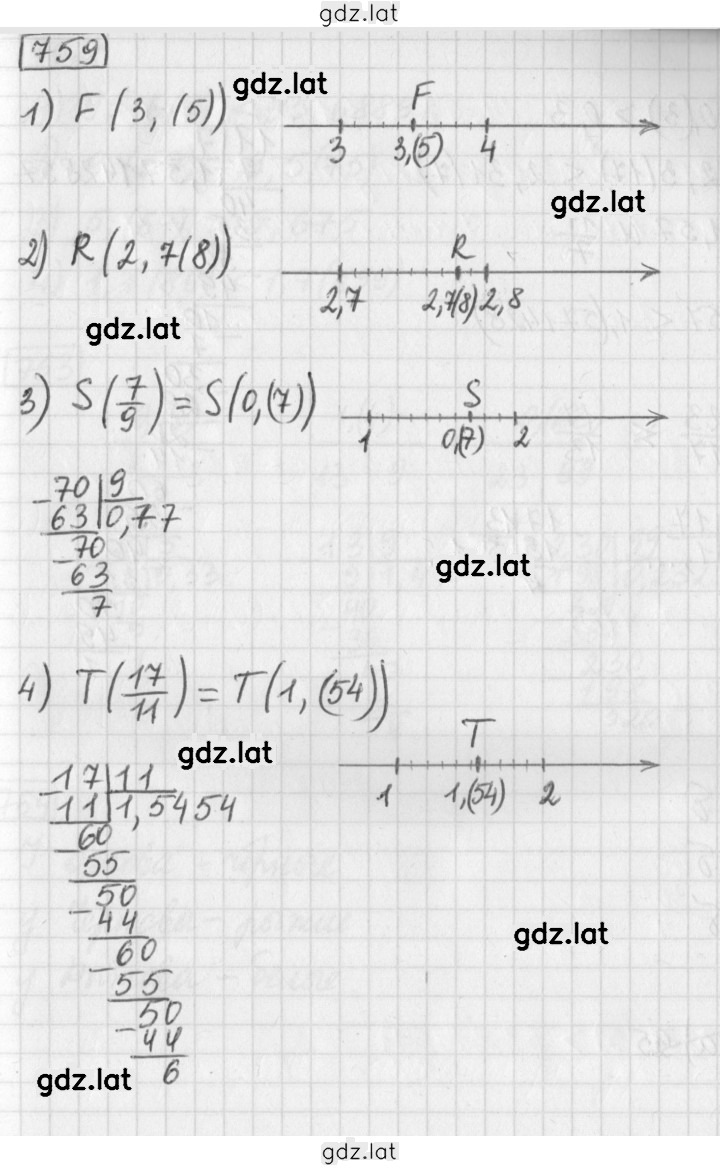 gdz.lat
759
gdz.lat
1) F (3, (5))
F
3 3,(5) 4
gdz.lat
2) R (2, 7(8))
R
2,7 2,7(8) 2,8
gdz.lat
3) S(7/9) = S(0,(7))
S
1 0,(7) 2
-70|9
63|0,77
-70
63
7
gdz.lat
4) T(17/11) = T(1, (54))
gdz.lat
T
1 1,(54) 2
-17|11
11|1,5454
-60
55
-50
44
-60
55
-50
44
6
gdz.lat
gdz.lat
gdz.lat